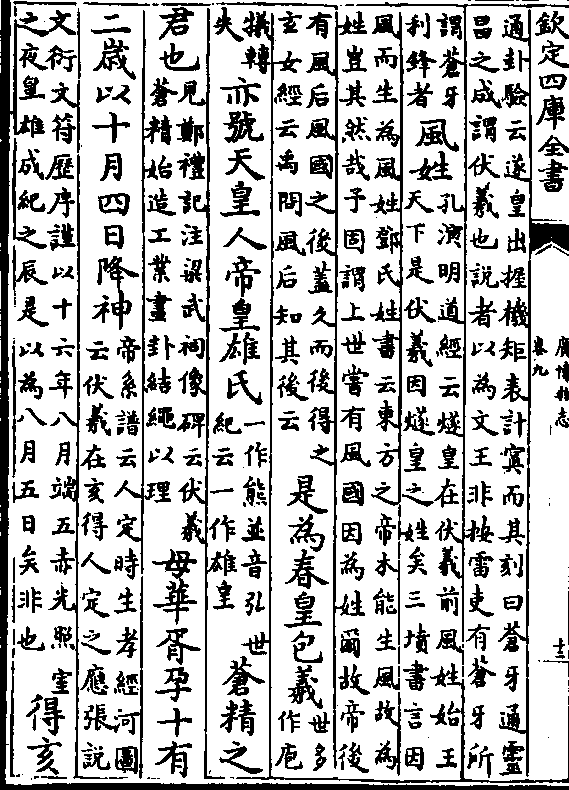 欽定四庫全書
廣博物志
卷九
通卦驗云遂皇出握機矩表計寘而其刻曰蒼牙通靈
昌之成謂伏羲也說者以為文王非按雷吏有蒼牙所
謂蒼牙
利鋒者
風姓
孔演明道經云燧皇在伏羲前風姓始王
天下是伏羲因燧皇之姓矣三墳書言因
風而生為風姓鄧氏姓書云東方之帝木能生風故為
姓豈其然哉予固謂上世嘗有風國因為姓爾故帝後
有風后風國之後蓋久而後得之
玄女經云禹問風后知其後云
是為春皇包羲
世多
作庖
犧轉
失
亦號天皇人帝皇雄氏
一作熊並音弘世
紀云一作雄皇
蒼精之
君也
見鄭禮記注梁武祠像碑云伏羲
蒼精始造工業畫卦結繩以理
母華胥孕十有
二歲以十月四日降神
帝系譜云人定時生孝經河圖
云伏羲在亥得人定之應張說
文衍文符歷序謹以十六年八月端五赤光照室
之夜皇雄成紀之辰是以為八月五日矣非也
得亥